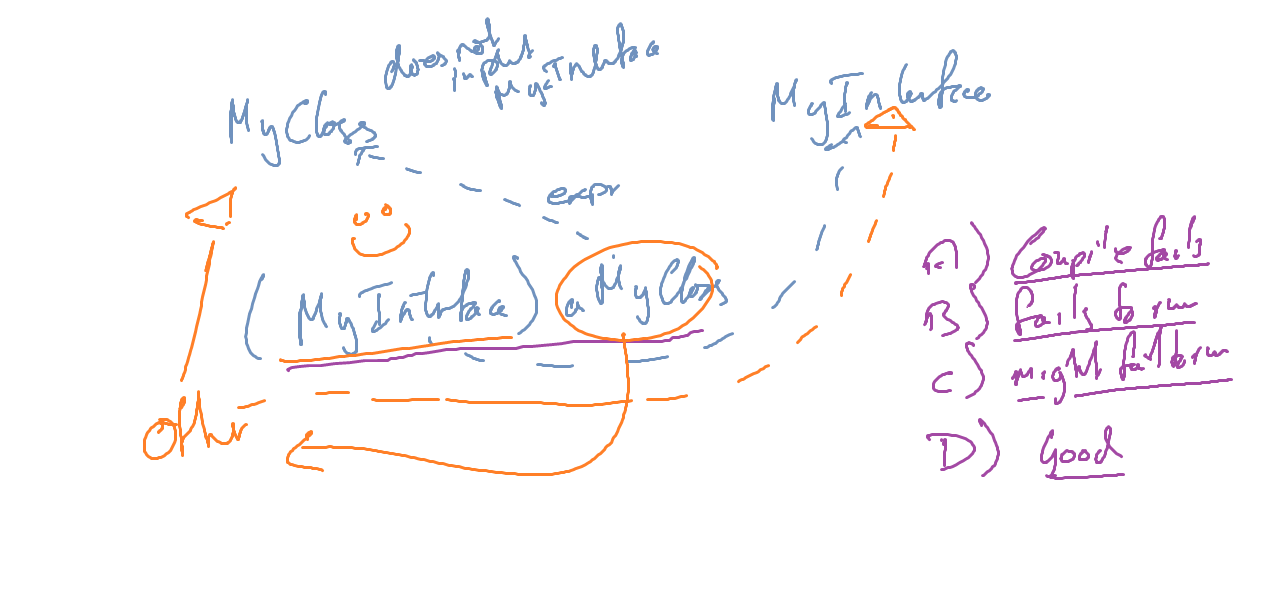 does not
implt
MyInterface
MyClass
MyInterface
expr
(MyInterface) aMyClass
Other
A) Compile fails
B) fails to run
C) might fail to run
D) Good